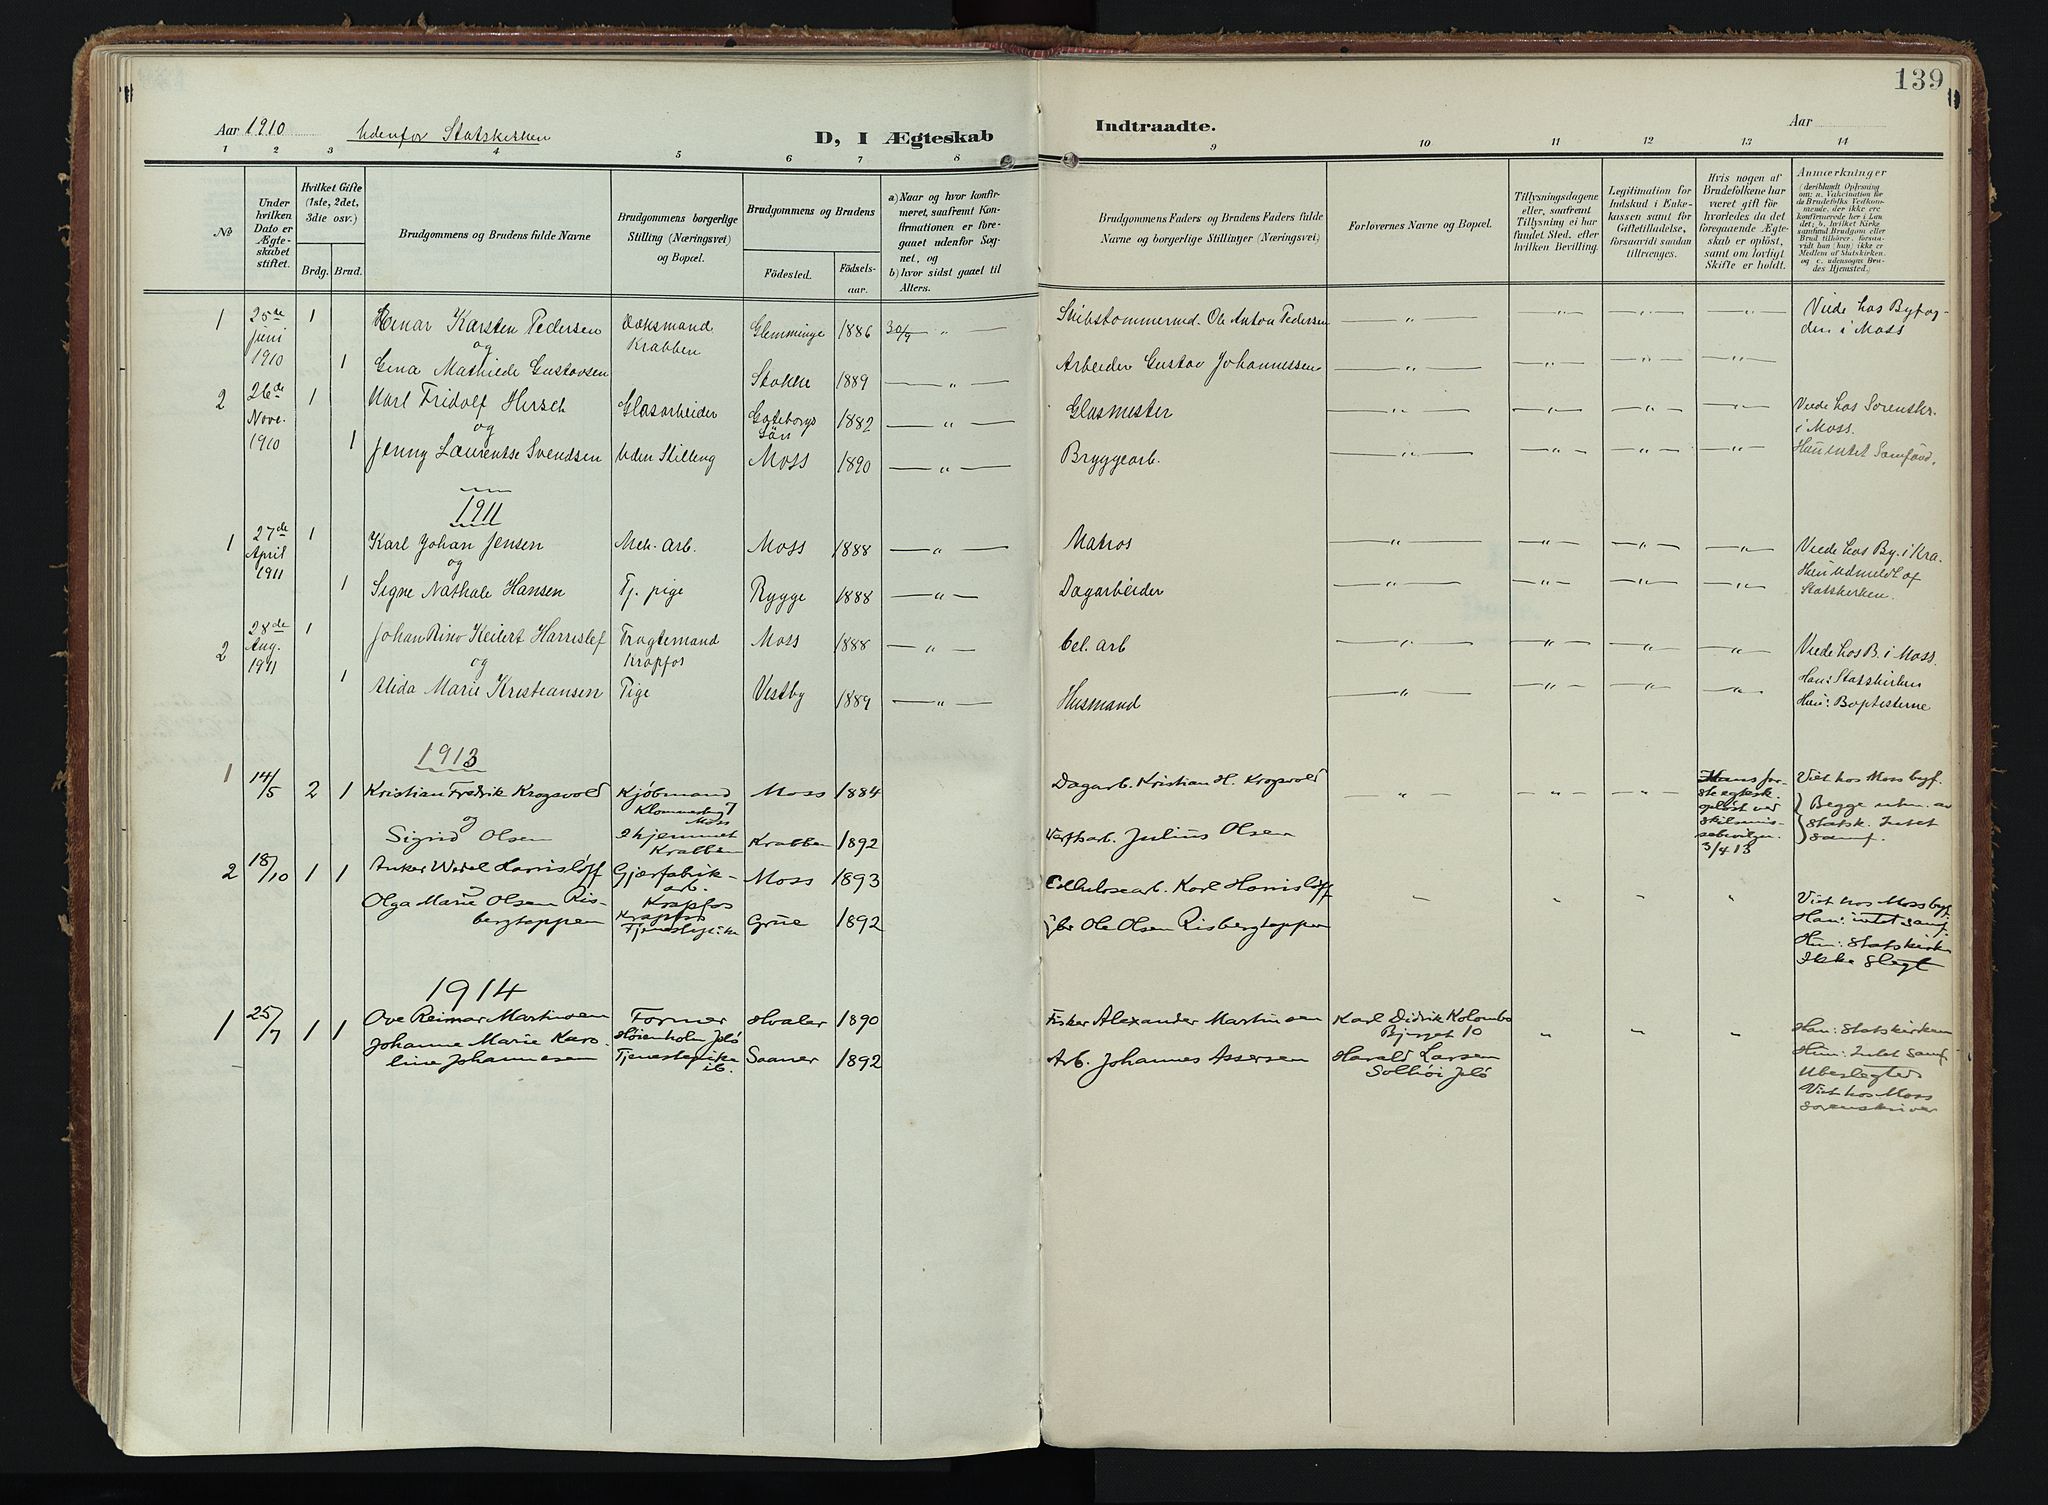 139
Aar 1910 Udenfor Statskirken D, I Ægteskab Indtraadte. Aar
1 2 3 4 5 6 7 8 9 10 11 12 13 14
No
Under hvilken Dato er Ægteskabet stiftet.
Hvilket Gifte (1ste, 2det, 3die osv.)
Brdg. Brud.
Brudgommens og Brudens fulde Navne
Brudgommens borgerlige Stilling (Næringsvei) og Bopœl.
Brudgommens og Brudens
Födested. Födselsaar.
a) Naar og hvor konfirmeret, saafremt Konfirmationen er foregaaet udenfor Sognet, og
b) hvor sidst gaaet til Alters.
Brudgommens Faders og Brudens Faders fulde Navne og borgerlige Stillinger (Næringsvei)
Forlovernes Navne og Bopœl.
Tillysningsdagene eller, saafremt Tillysning ei har fundet Sted, efter hvilken Bevilling.
Legitimation for Indskud i Enkekassen samt for Giftetilladelse, forsaavidt saadan tiltrænges.
Hvis nogen af Brudefolkene har været gift før hvorledes da det foregaaende Ægteskab er opløst, samt om lovligt Skifte er holdt.
Anmerkninger
1 25de Juni 1910 1 Einar Karsten Pedersen Krabben Glemminge 1886 30/9 " Skibstømmermd. Ole Anton Pedersen " " " " Viede hos Byfogden i Moss
og
1 Gina Mathilde Gustavsen Stokke 1889 " Arbeider Gustav Johannessen " " " "
2 26de Nove. 1910 1 Karl Fridolf Hersch Glasarbeider Gøteborgs Län 1882 " Glasmester " " " " Viede hos Sorenskr. i Moss.
og
1 Jenny Laurentse Svendsen Uden Stilling Moss 1890 " Bryggearb. " " " " Hun intet Samfund.
1911
1 27de April 1911 1 Karl Johan Jensen Mek. arb. Moss 1888 " Matros " " " " Viede hos By. i Kra.
og
1 Signe Nathale Hansen Tj. pige Rygge 1888 " Dagarbeider " " " " Hun udmeldt af Statskirken.
2 28de Aug. 1911 1 Johan Rino Keilert Harrislef Krapfos Moss 1888 " Cel. arb " " " " Viede hos B. i Moss.
og
1 Alida Marie Kristiansen Pige Vestby 1889 " Husmand " " " " Han: Statskirken
Hun: Baptisterne
1913
1 14/5 2 1 Kristian Fredrik Krogsvold Kjøbmand Moss Moss 1884 Dagarb. Kristian H. Krogsvold " " " Hans første egtesk. opløst ved skilsmissebevilgn. 3/4 13 Viet hos Moss byf.
og
Sigrid Olsen Hjemmet Krabben Krabben 1892 Verftsarb. Julius Olsen Begge utm. av statsk. Intet samf.
2 18/10 1 1 Anker Wedel Harrisløff Gjærfabrikarb. Krapfos Moss 1893 Cellulosearb. Karl Harrisløff " " " " Viet hos Moss byf.
Olga Marie Olsen Risbergtoppen Krapfos Tjenestepike Grue 1892 Ole Olsen Risbergtoppen Han: intet samf.
Hun: statskirken
Ikke slegt
1914
1 25/7 1 1 Ove Reimar Martinsen Former Høienholm Jelø Hvaler 1890 Fisker Alexander Martinsen Karl Didrik Kolombo 10 " " " Han: statskirken
Johanne Marie Karoline Johannesen Tjenestepike ib. Saaner 1892 Arb. Johannes Assersen Harald Larsen Solhøi Jelø Hun: Intet samf.
Ubeslegtet
Viet hos Moss
sorenskriver